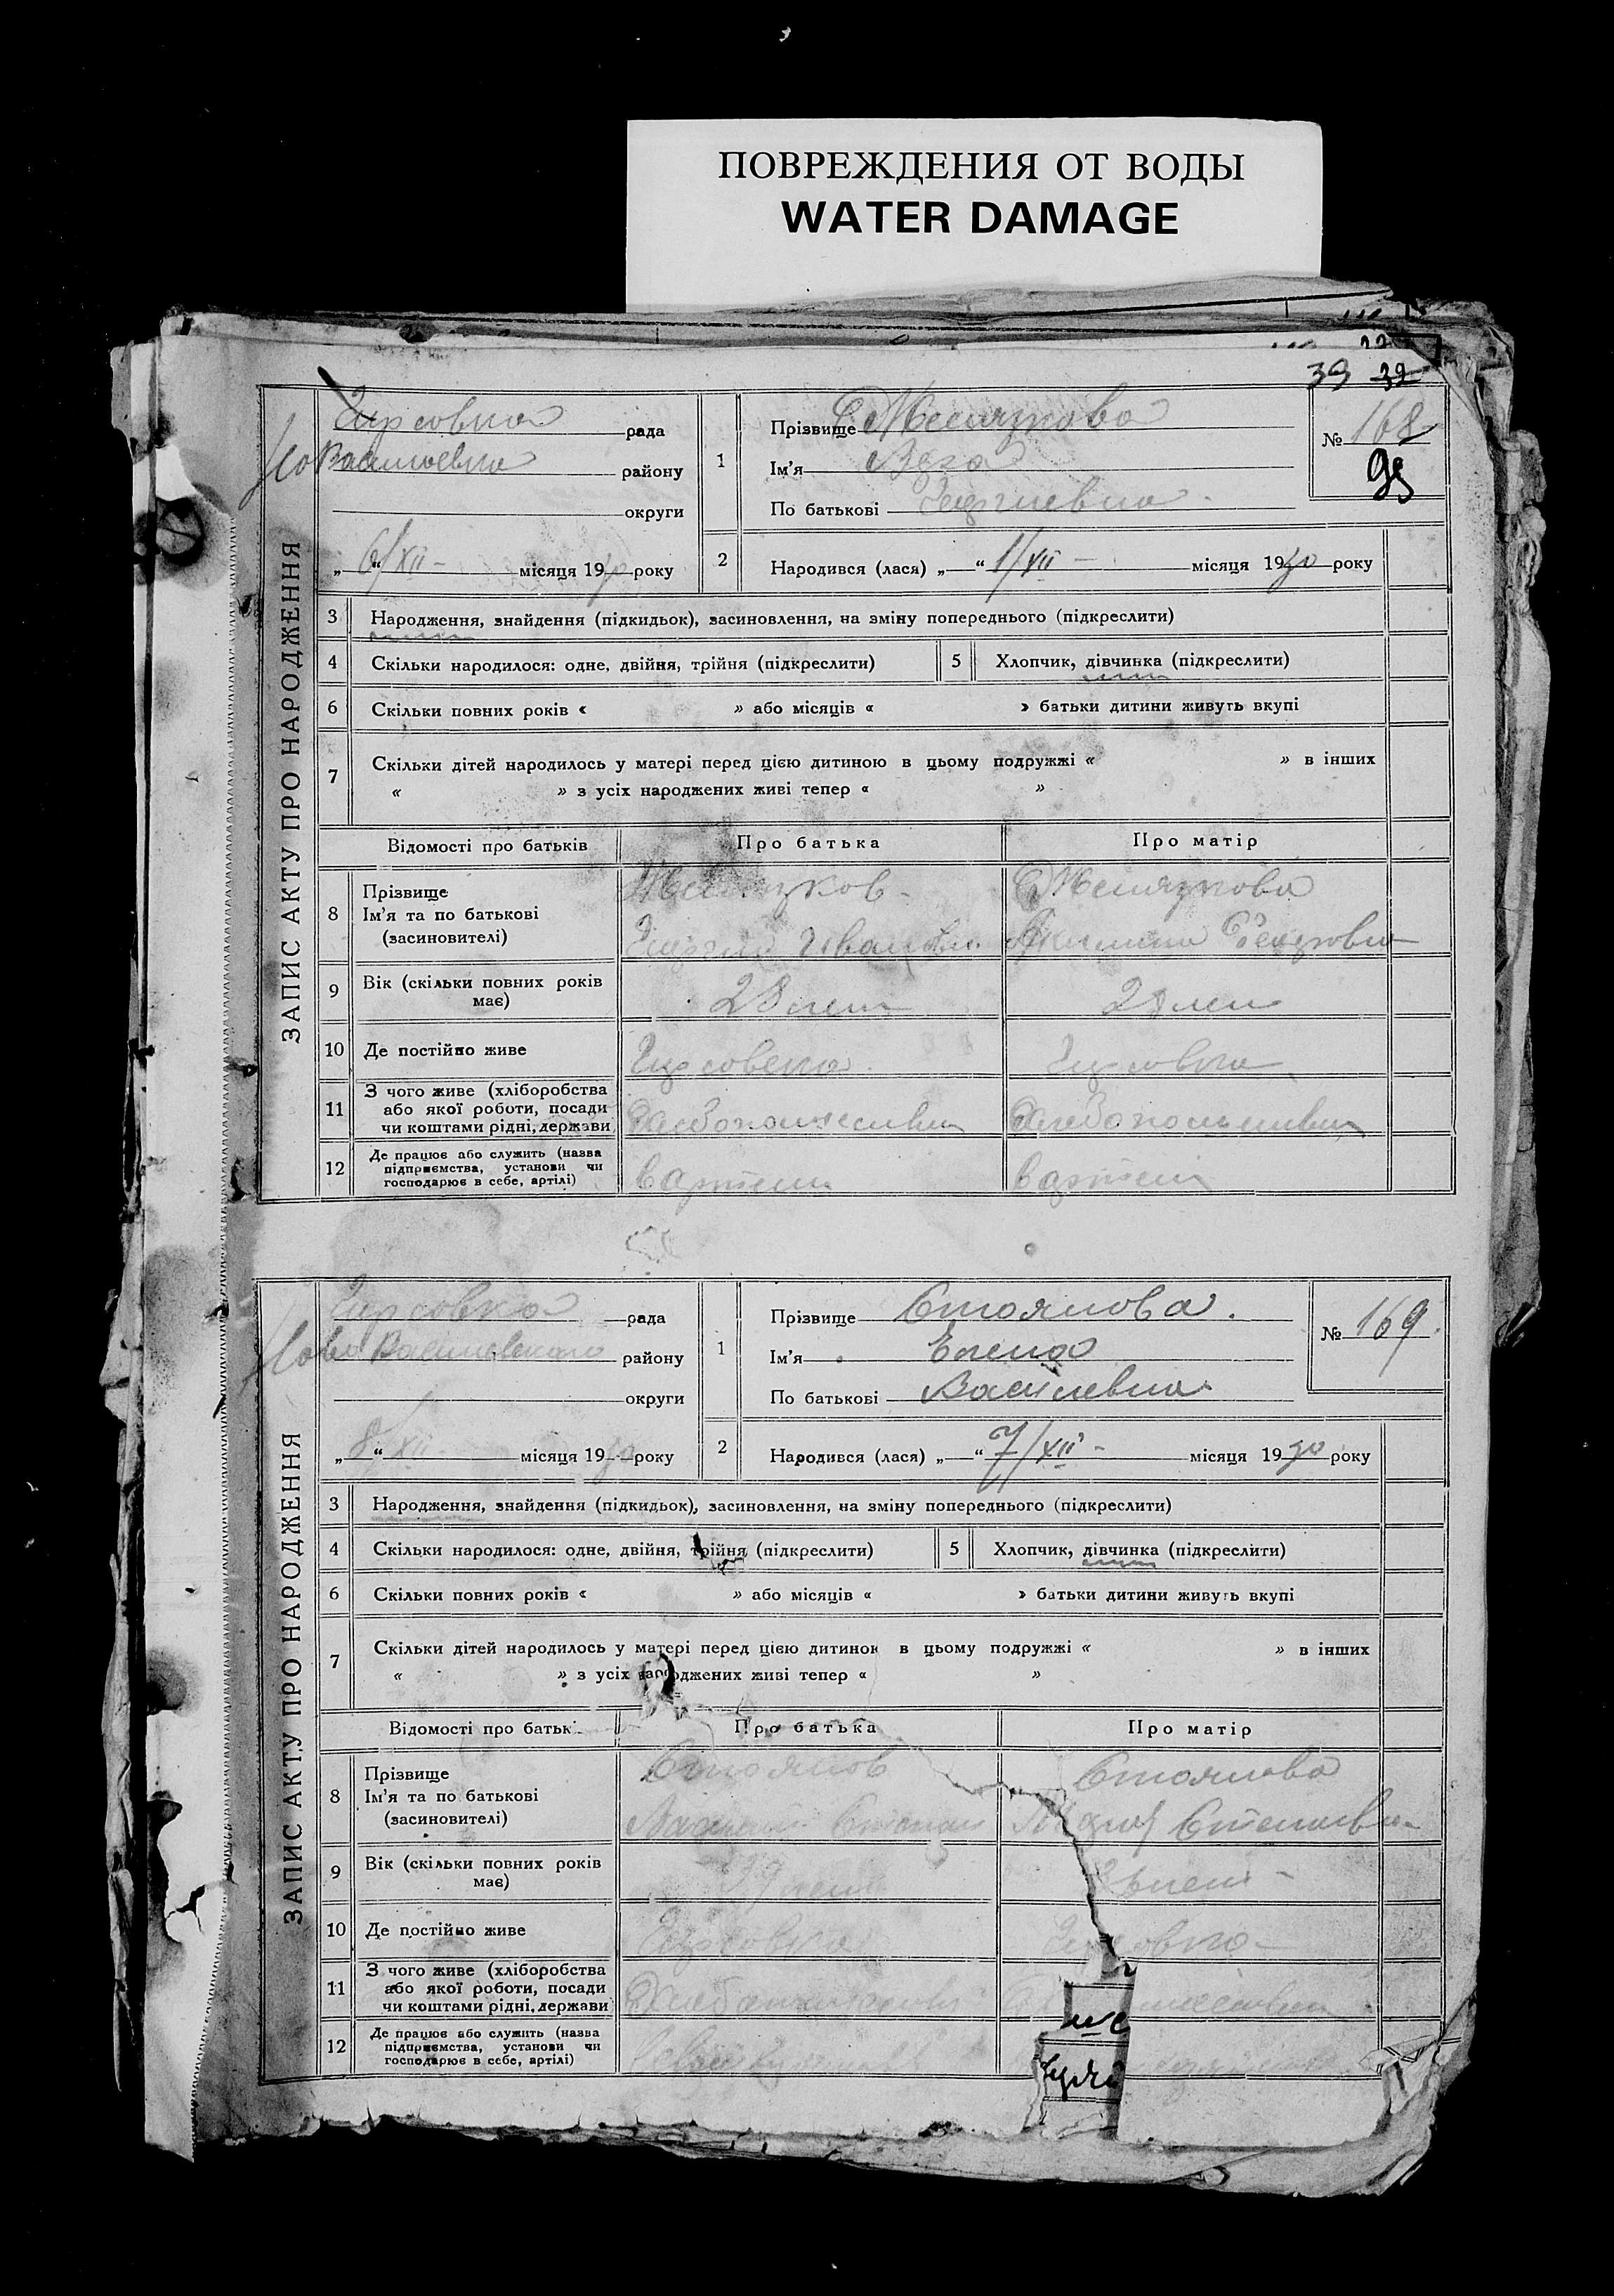 ПОВРЕЖДЕНИЯ ОТ ВОДЫ
WATER DAMAGE
39 39
ЗАПИС АКТУ ПРО НАРОДЖЕННЯ
Гирсовка рада
району
округи
„6/XII - “ місяця 1930 року
1
Прізвище
Ім'я Вера
По батькові Георгиевна
№ 168
98
2
Народився (лася) „ “ 1/XII - місяця 1930 року
3 Народження, знайдення (підкидьок), засиновлення, на зміну попереднього (підкреслити)
4 Скільки народилося: одне, двійня, трійня (підкреслити)
5 Хлопчик, дівчинка (підкреслити)
6 Скільки повних років « » або місяців « » батьки дитини живуть вкупі
7 Скільки дітей народилось у матері перед цією дитиною в цьому подружжі « » в інших
« » з усіх народжених живі тепер « »
Відомості про батьків Про батька Про матір
8 Прізвище
Ім'я та по батькові Георгий Иванович
(засиновителі)
9 Вік (скільки повних років має) 28 лет 28 лет
10 Де постійно живе Гирсовка Гирсовка
11 З чого живе (хліборобства
або якої роботи, посади
чи коштами рідні, держави
12 Де працює або служить (назва
підприємства, установи чи
господарює в себе, артілі) в артели в артели
ЗАПИС АКТУ ПРО НАРОДЖЕННЯ
Гирсовка рада
Ново Васильевского району
округи
„8“ XII - місяця 1930 року
1
Прізвище Стоянова.
Ім'я Елена
По батькові Василевна
№ 169
2
Народився (лася) „ “ 7/XII - місяця 1930 року
3 Народження, знайдення (підкидьок), засиновлення, на зміну попереднього (підкреслити)
4 Скільки народилося: одне, двійня, трійня (підкреслити)
5 Хлопчик, дівчинка (підкреслити)
6 Скільки повних років « » або місяців « » батьки дитини живуть вкупі
7 Скільки дітей народилось у матері перед цією дитиною в цьому подружжі « » в інших
« » з усіх народжених живі тепер « »
Відомості про батьк Про батька Про матір
8 Прізвище Стоянов Стоянова
Ім'я та по батькові
(засиновителі)
9 Вік (скільки повних років має)
10 Де постійно живе Гирсовка Гирсовка
11 З чого живе (хліборобства
або якої роботи, посади
чи коштами рідні, держави
12 Де працює або служить (назва
підприємства, установи чи
господарює в себе, артілі)